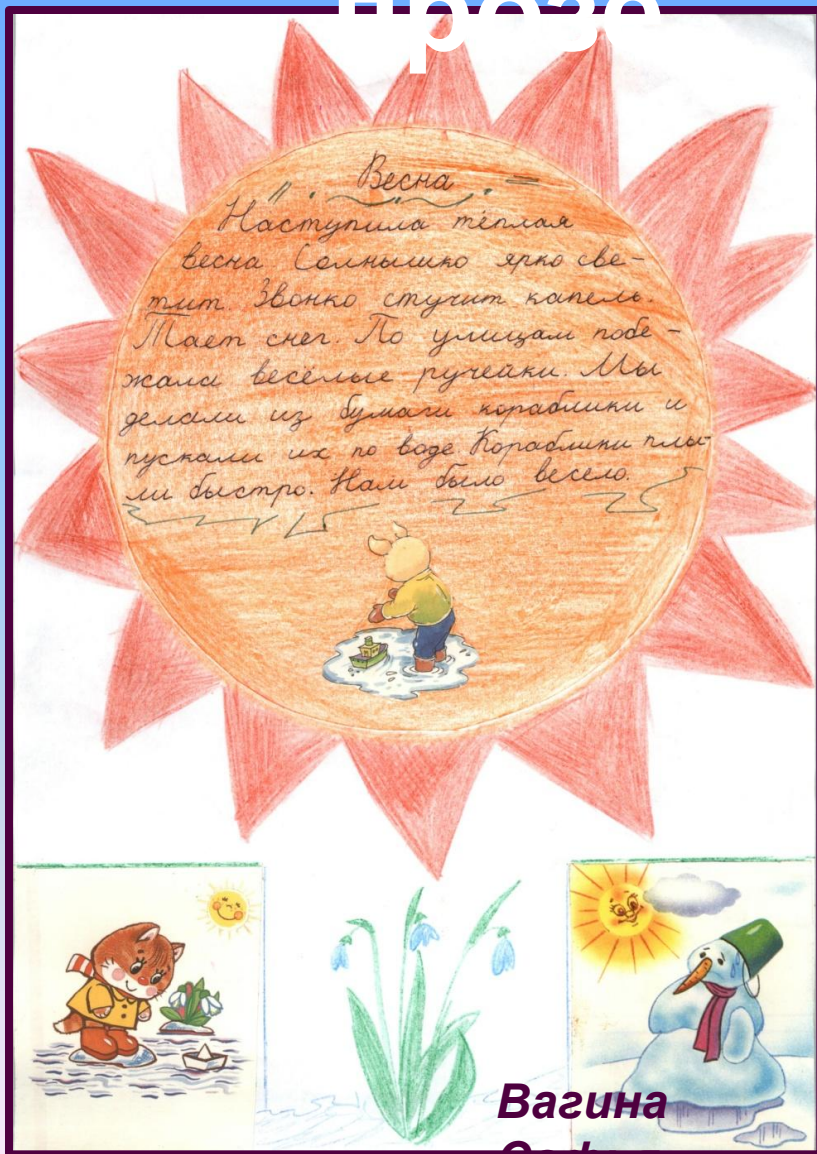 Весна
Наступила тёплая
весна Солнышко ярко све-
тит. Звонко стучит капель.
Тает снег. По улицам побе-
жали весёлые ручейки. Мы
делали из бумаги кораблики и
пускали их по воде Кораблики плы-
ли быстро. Нам было весело.
Вагина